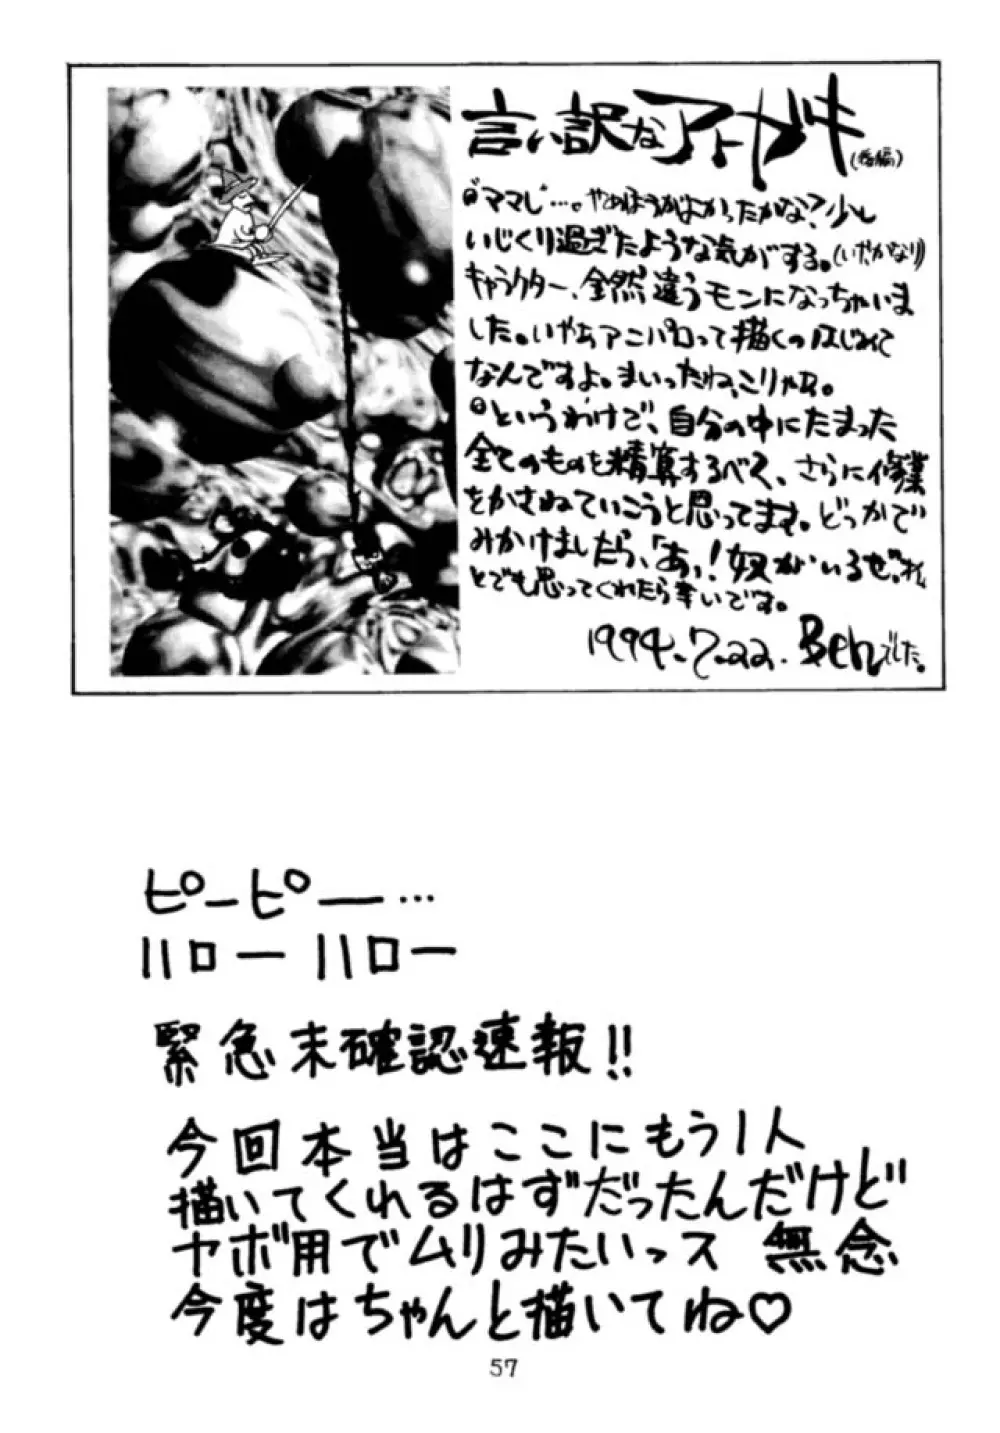 言い訳なアトガキ(番編)
"ママレ…。やめほうがよかったかな？少し
いじくり過ぎたような気がする。(いやかなり)
キャラクター、全然違うモンになっちゃいま
した。いやぁアニパロって描くのはじめて
なんですよ。まいったね、こりゃ。
というわけで、自分の中にたまった
全てのものを精算するべく、さらに修業
をかさねていこうと思ってます。どっかで
みかけましたら、「あっ！奴がいるぜ、
とでも思ってくれたら幸いです。
1994.7.22. Benでした。
ピーピー…
ハローハロー
緊急未確認速報!!
今回本当はここにもう1人
描いてくれるはずだったんだけど
ヤボ用でムリみたいっス 無念
今度はちゃんと描いてね♡
57